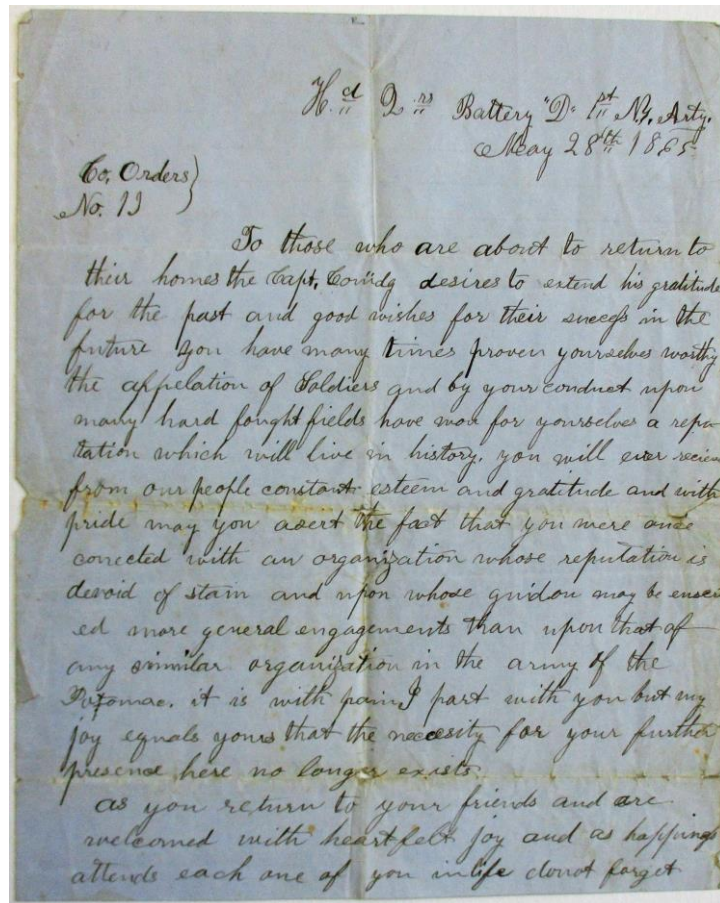 Hd Qrs Battery "D" 1st N.Y. Arty.
May 28th 1865
Co. Orders }
No. 11
To those who are about to return to
their homes the Capt, Comdg desires to extend his gratitude
for the past and good wishes for their success in the
future you have many times proven yourselves worthy
the appelation of Soldiers and by your conduct upon
many hard fought fields have won for yourselves a repu
tation which will live in history. you will ever
from our people constant esteem and gratitude and with
pride may you asert the fact that you were once
conected with an organization whose reputation is
devoid of stain and upon whose guidon may be
ed more general engagements than upon that of
any simular organization in the army of the
Potomac. it is with pain I part with you but my
joy equals yours that the necesity for your further
presence here no longer exists.
as you return to your friends and are
welcomed with heartfelt joy and as happiness
attends each one of you in life donot forget